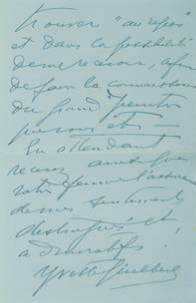 trouver "au repos"
et dans la possibilité
de me revoir, afin
de faire la connaissance
du grand peintre
que vous êtes
En attendant
recevez ainsi que
votre femme l'assurance
de mes sentiments
distingués et
admiratifs.
Yvette Guilbert